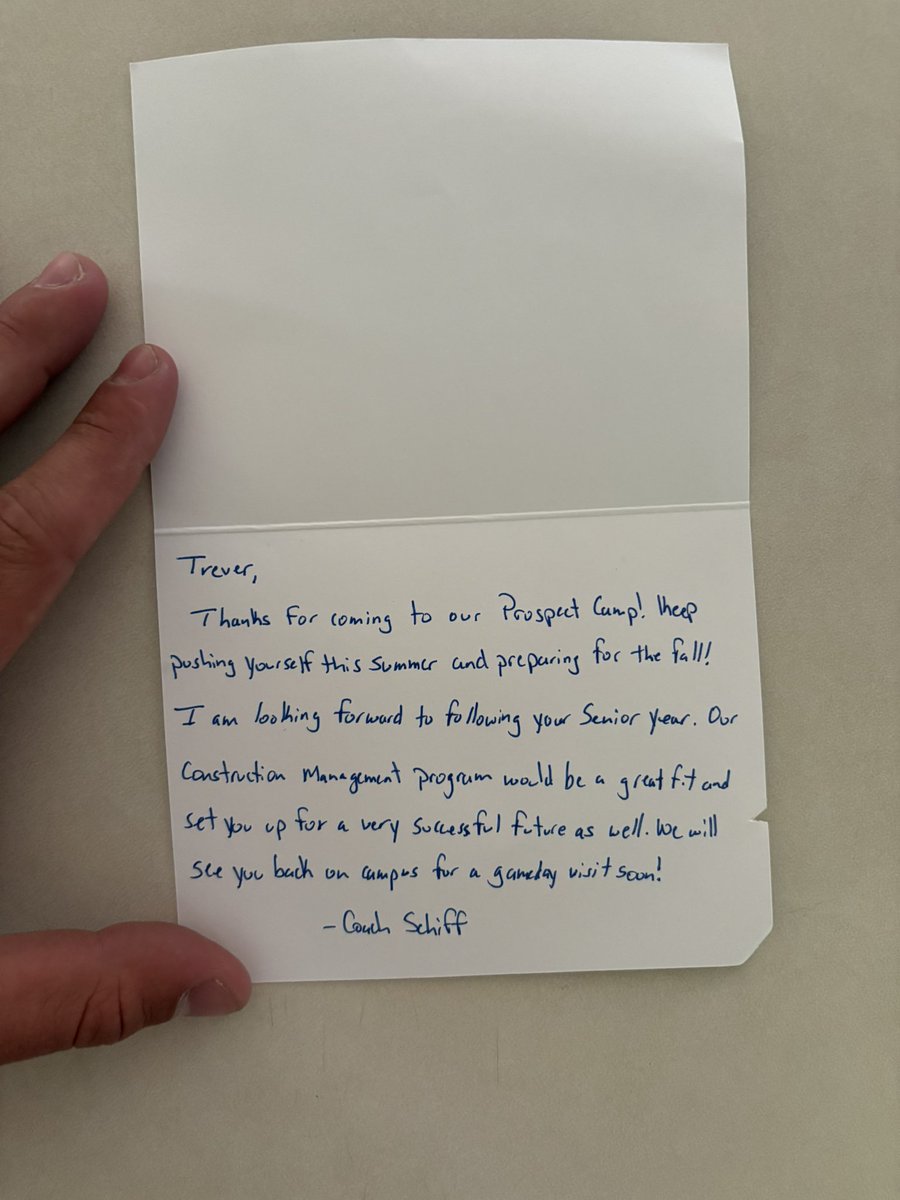 Trever,
Thanks for coming to our Prospect Camp! Keep
pushing yourself this summer and preparing for the fall!
I am looking forward to following your Senior year. Our
Construction Management program would be a great fit and
set you up for a very successful future as well. We will
see you back on campus for a gameday visit soon!
- Coach Schiff